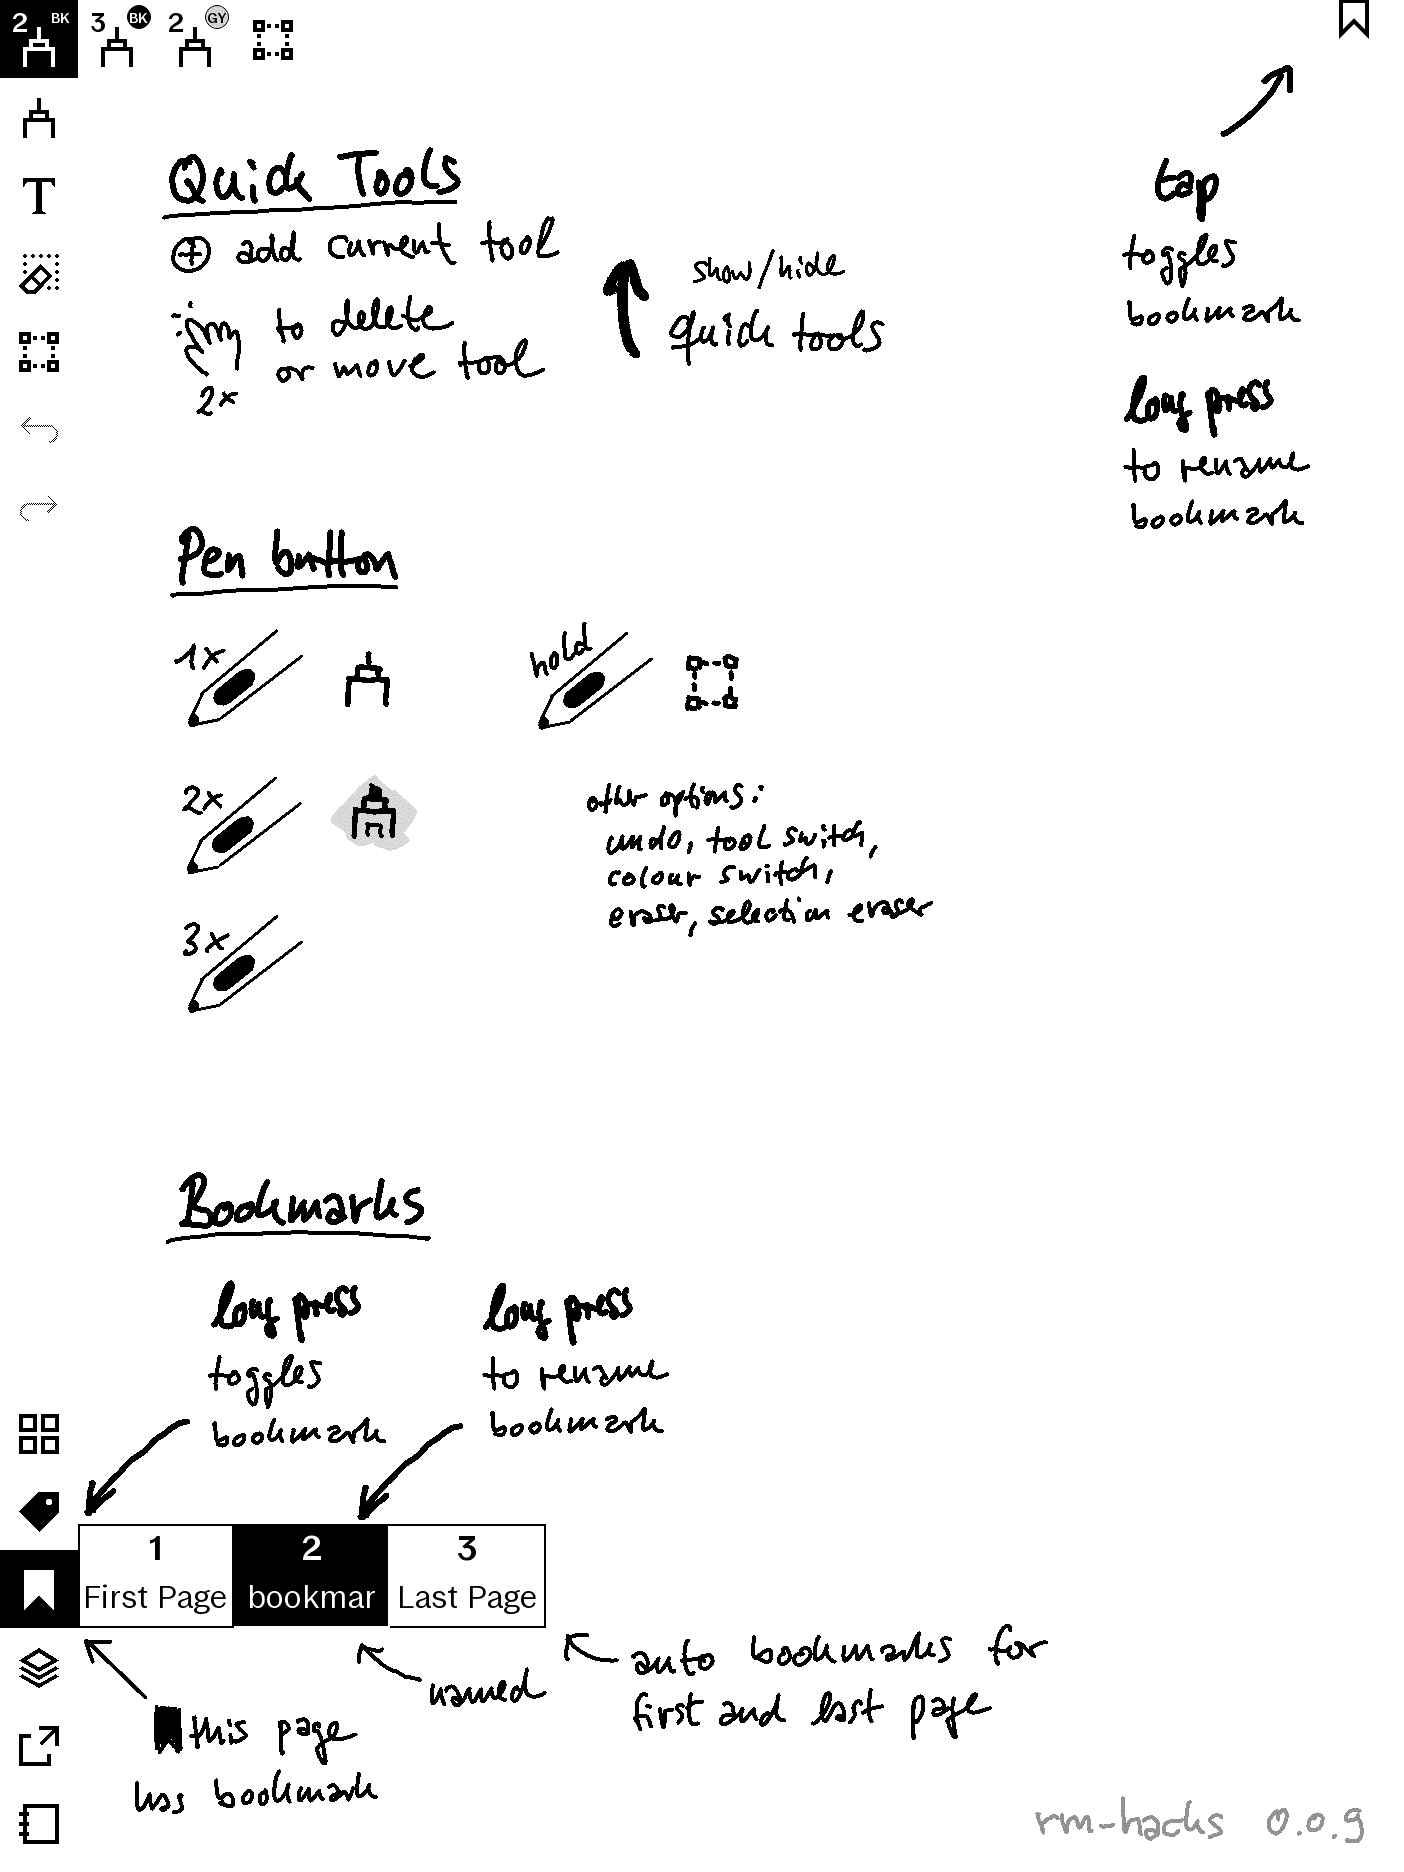 2 BK 3 BK 2 GY
T
Quick Tools
add current tool
to delete
or move tool
2x
show/hide
quick tools
tap
toggles
bookmark
long press
to rename
bookmark
Pen button
1x
hold
2x
other options:
undo, tool switch,
colour switch,
eraser, selection eraser
3x
Bookmarks
long press
toggles
bookmark
long press
to rename
bookmark
1 2 3
First Page bookmar Last Page
named
auto bookmarks for
first and last page
this page
has bookmark
rm-hacks 0.0.9